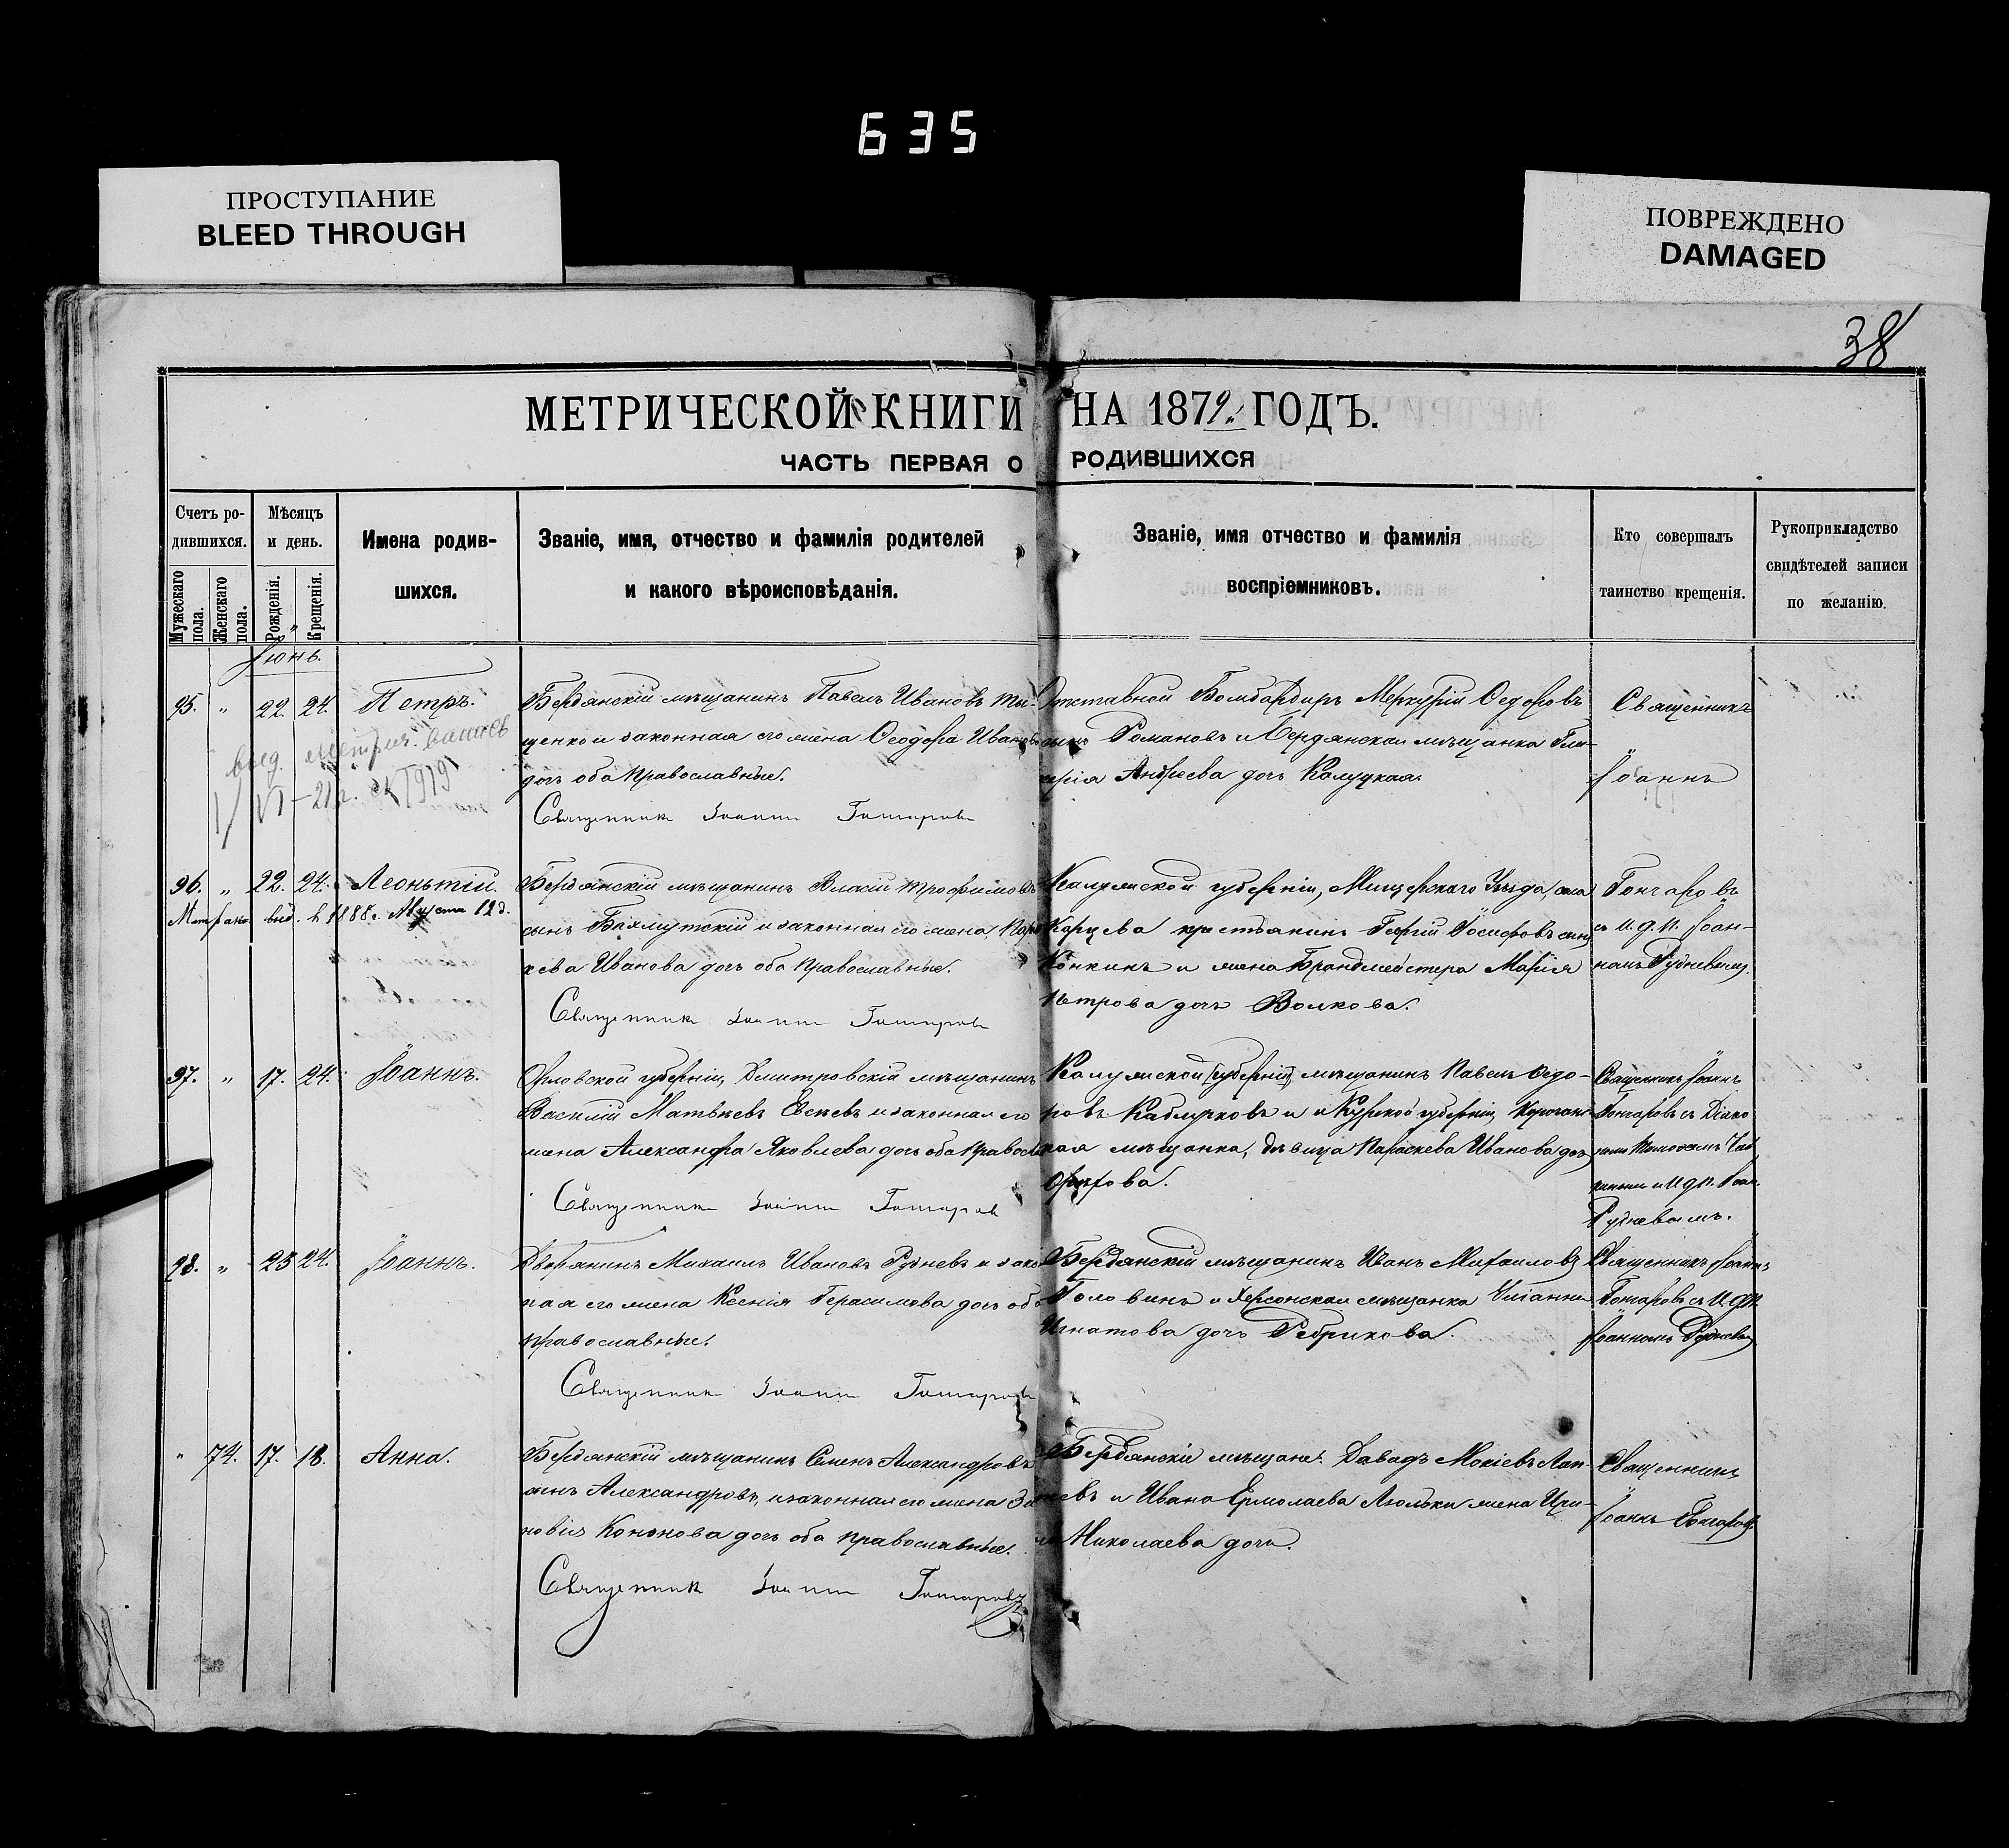 635
ПРОСТУПАНИЕ
BLEED THROUGH
ПОВРЕЖДЕНО
DAMAGED
38
МЕТРИЧЕСКОЙ КНИГИ НА 1879 ГОДЪ.
ЧАСТЬ ПЕРВАЯ О РОДИВШИХСЯ
Счетъ ро-
дившихся.
Мужескаго пола.
Женскаго пола.
Мѣсяцъ
и день.
Рожденія.
Крещенія.
Имена родив-
шихся.
Званіе, имя, отчество и фамилія родителей
и какого вѣроисповѣданія.
Званіе, имя отчество и фамилія
воспріемниковъ.
Кто совершалъ
таинство крещенія.
Рукоприкладство
свидѣтелей записи
по желанію.
Іюнь.
95. " 22. 24. Петръ.
Бердянскій мѣщанинъ Павелъ Ивановъ
щенко и законная его жена Ѳеодора Иванова
дочь оба православные.
Священник Іоанн Гончаров
Отставной Бомбардиръ Меркурій Ѳедоровъ
сынъ Романовъ и Бердянская мѣщанка Гли-
керія Андреева дочь Калуцкая.
Священникъ
Іоаннъ
96. " 22. 24. Леонтій.
выд. 1888 г. Августа 12 д.
Бердянскій мѣщанинъ Власій Трофимовъ
сынъ Бахмутскій и законная его жена Парас
кева Иванова дочь оба православные.
Священник Іоанн Гончаров
Калужской губерніи, Мещерскаго Уѣзда, села
крестьянинъ Георгій Іосифовъ сынъ
Конкинъ и жена Брандмейстера Марія
Петрова дочь Волкова.
Гончаровъ
съ и. д. п. Іоан-
номъ Рудневымъ.
97. " 17. 24. Іоаннъ.
Орловской губерніи, Дмитровскій мѣщанинъ
Василій Матвѣевъ Евсѣевъ и законная его
жена Александра Яковлева дочь оба православ
Священник Іоанн Гончаров
Калужской губерніи, мѣщанинъ Павелъ Ѳедо-
ровъ и Курской губерніи,
мѣщанка, дѣвица Параскева Иванова дочь
Священникъ Іоаннъ
Гончаровъ съ Діако
и и. д. п. Іоан.
Рудневымъ.
98. " 23 24. Іоаннъ.
Дворянинъ Михаилъ Ивановъ Рудневъ и закон
ная его жена Ксенія Герасимова дочь оба
православные.
Священник Іоанн Гончаров
Бердянскій мѣщанинъ Иванъ Михаиловъ
Головинъ и Херсонская мѣщанка
Игнатова дочь Ребрикова.
Священникъ Іоаннъ
Гончаровъ съ и. д. п.
Іоанномъ Рудневымъ
" 74. 17. 18. Анна.
Бердянскій мѣщанинъ Семенъ Александровъ
сынъ Александровъ, и законная его жена Зи
новія Кононова дочь оба православные.
Священник Іоанн Гончаровъ
Бердянскіе мѣщане: Давидъ Мокіевъ Лап-
евъ и Ивана Ермолаева Люльки жена Ири-
на Николаева дочь.
Священникъ
Іоаннъ Гончаровъ